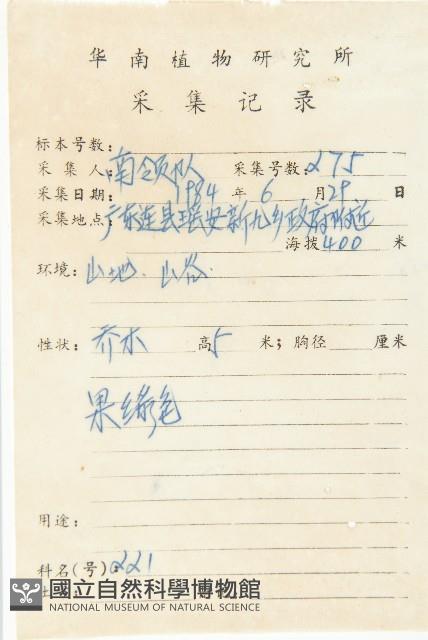 华南植物研究所
采集记录
标本号数：
采集人：南岭队 采集号数：275
采集日期：1984年6月29日
采集地点：广东连县瑶安新九乡政府附近
海拨400米
环境：山地、山谷.
性状：乔木 高5米；胸径 厘米
果绿色
用途：
科名(号)：221
國立自然科學博物館
NATIONAL MUSEUM OF NATURAL SCIENCE